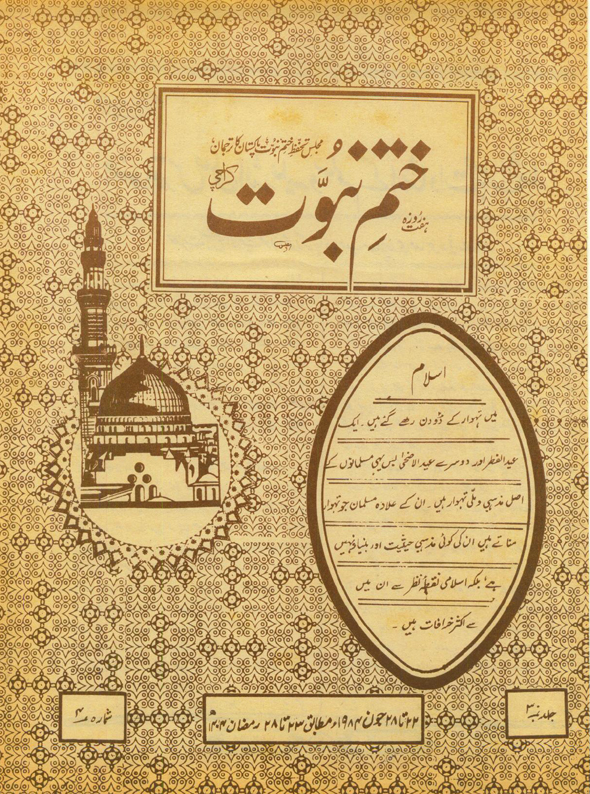 مجلس تحفظ ختم نبوت پاکستان کا ترجمان
ہفت روزہ
ختمِ نبوّت
کراچی
اسلام
میں تہوار کے دو دن رکھے گئے ہیں ۔ ایک
عیدالفطر اور دوسرے عیدالاضحیٰ بس یہی مسلمانوں کے
اصل مذہبی و ملی تہوار ہیں ۔ ان کے علاوہ مسلمان جو تہوار
مناتے ہیں ان کی کوئی مذہبی حیثیت اور بنیاد نہیں
ہے‘ بلکہ اسلامی نقطۂ نظر سے ان میں
سے اکثر خرافات ہیں ۔
جلد نمبر ۳
۲۲ تا ۲۸ جون ۱۹۸۴ء مطابق ۲۳ تا ۲۸ رمضان ۱۴۰۴ھ
شمارہ ۴